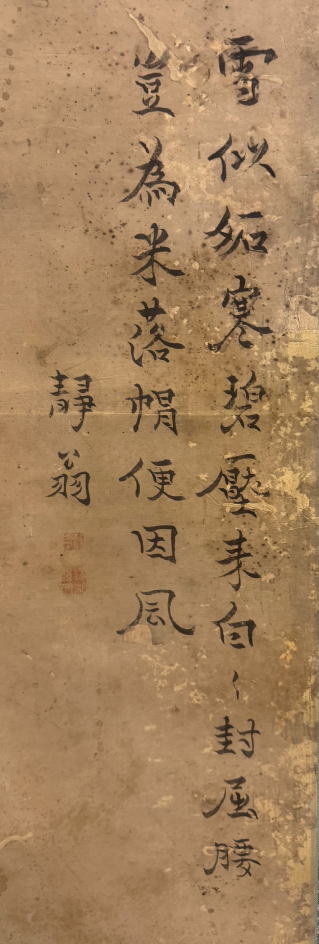 雪似妬寒碧壓来自〻封屈腰
豈為米落帽便因風
靜翁